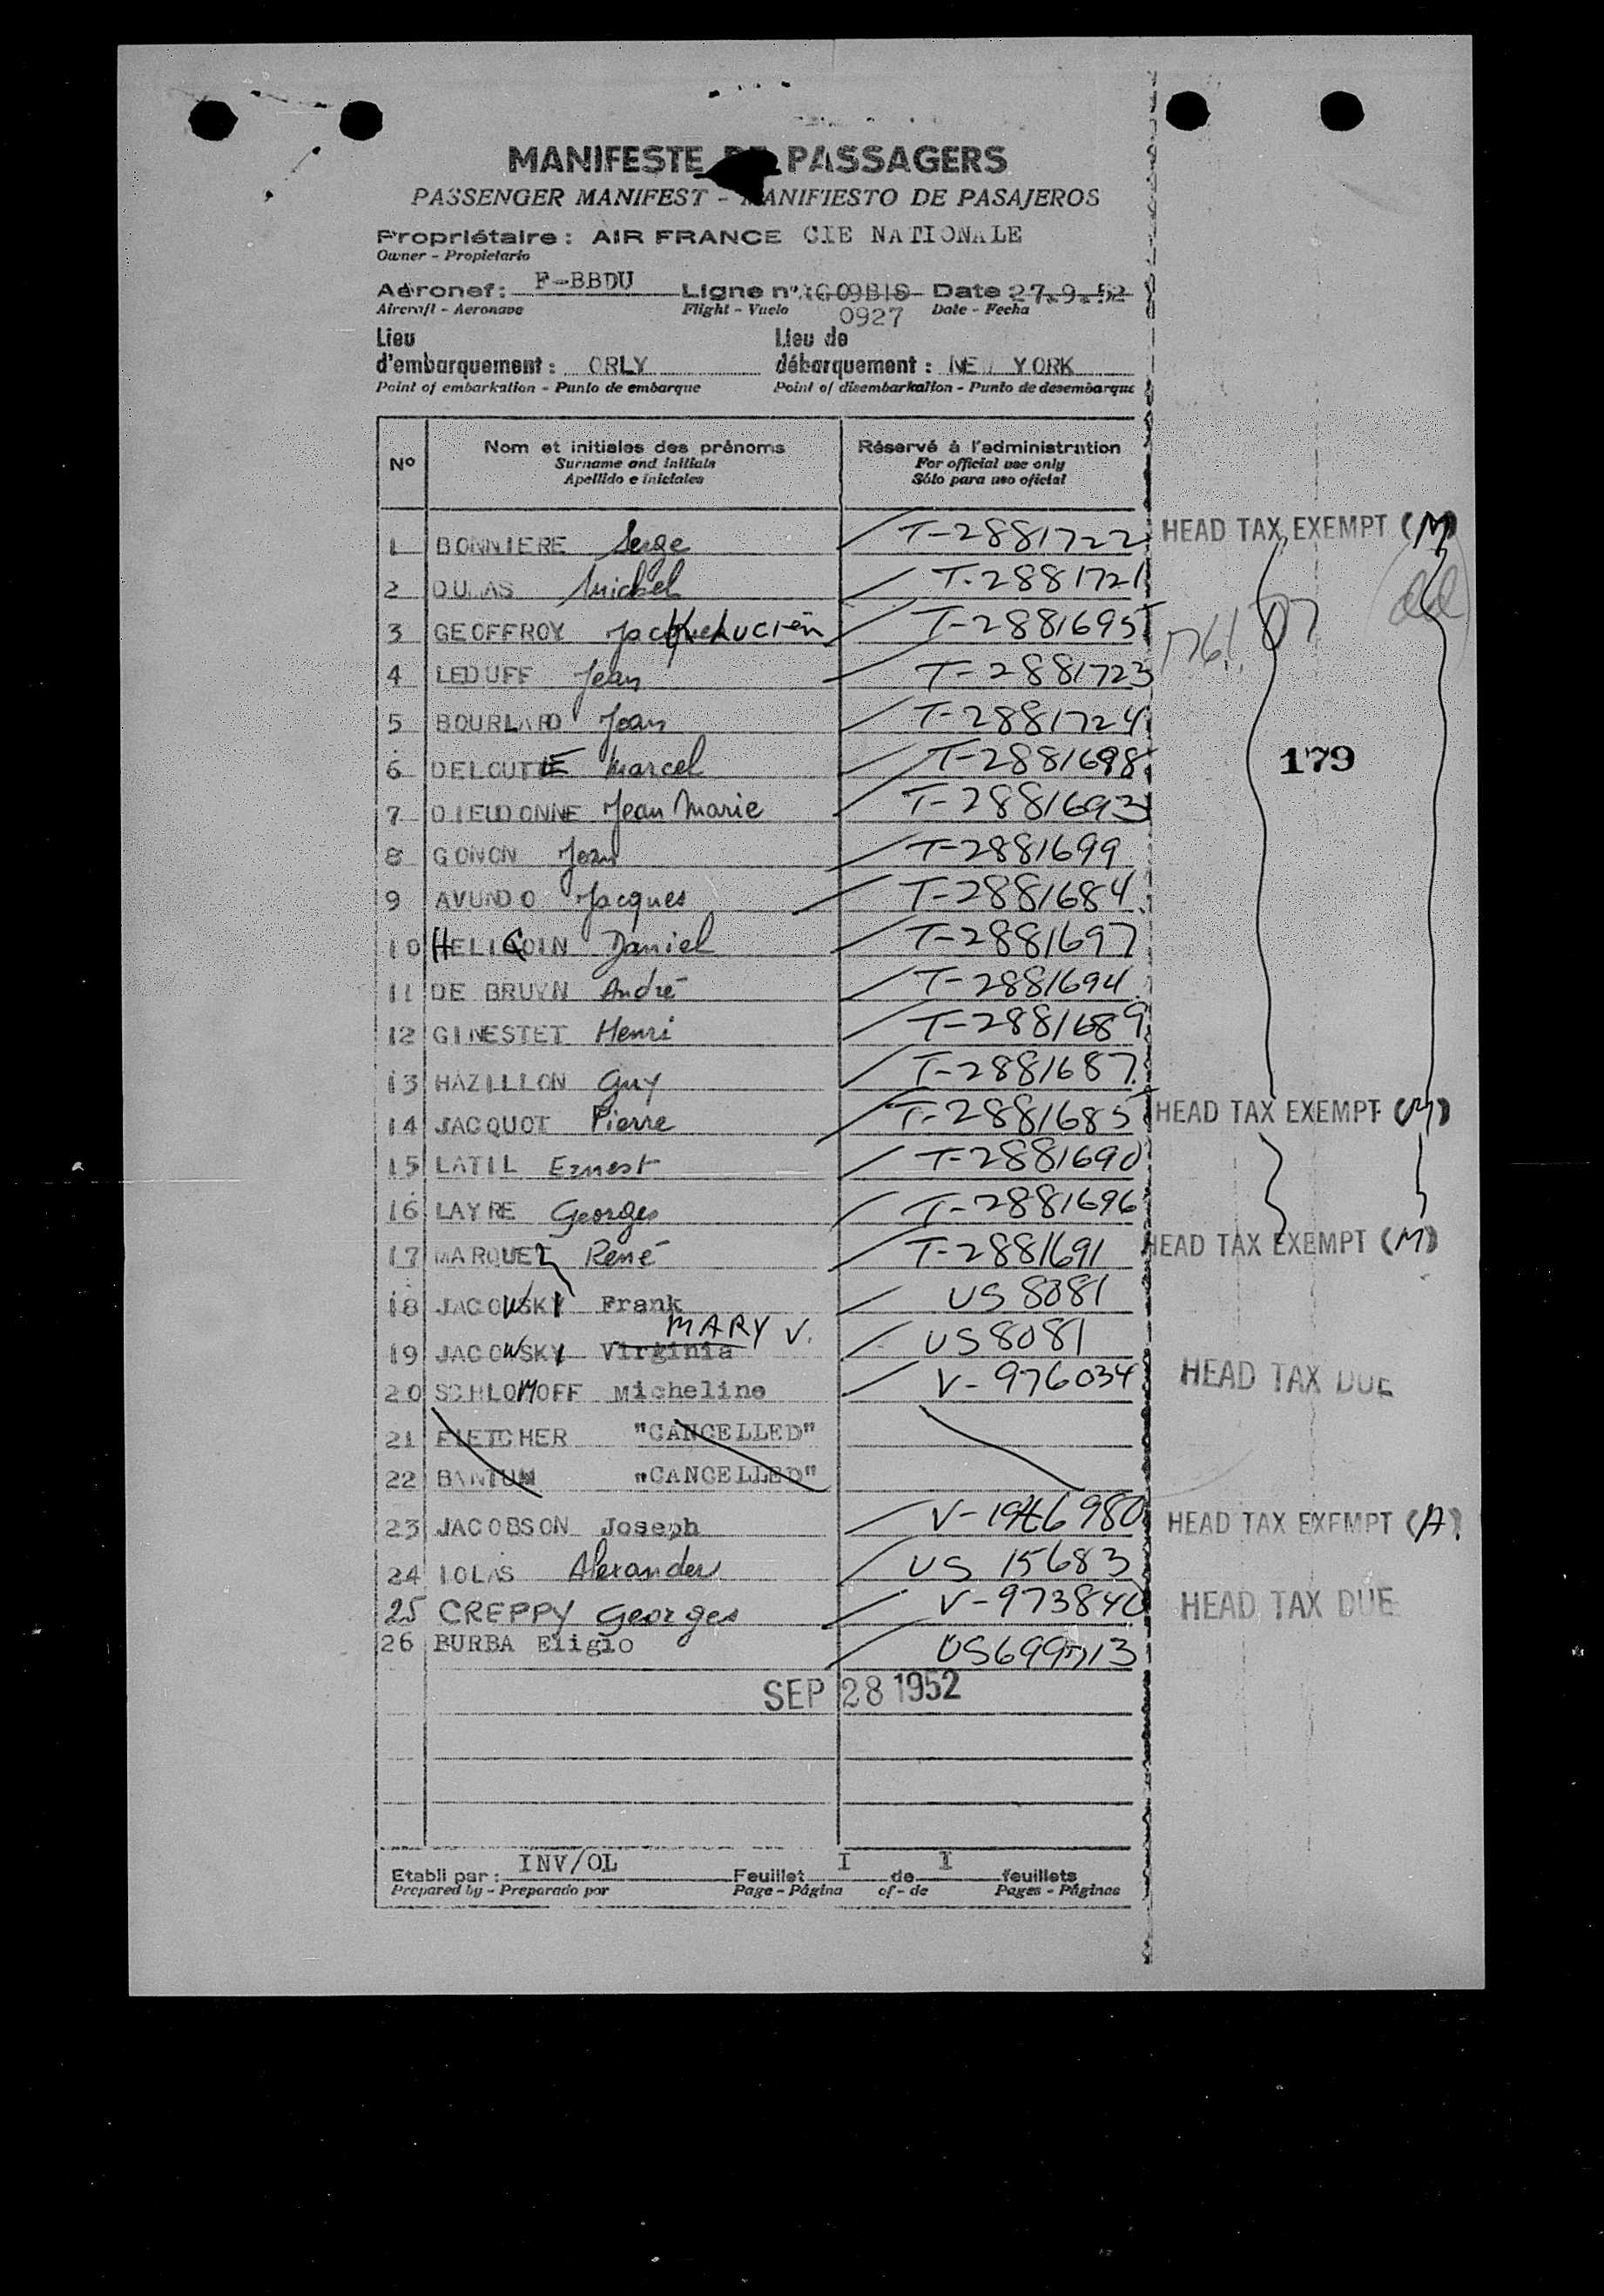 MANIFESTE DE PASSAGERS
PASSENGER MANIFEST - MANIFIESTO DE PASAJEROS
Propriétaire : AIR FRANCE CIE NATIONALE
Owner - Propietario
Aéronef : F-BBDU Ligne n° AG 09BIS Date 27.9.52
Aircraft - Aeronave Flight - Vuelo 0927 Date - Fecha
Lieu d'embarquement : ORLY Lieu de débarquement : NEW YORK
Point of embarkation - Punto de embarque Point of disembarkation - Punto de desembarque
N° Nom et initiales des prénoms Réservé à l'administration
Surname and initials For official use only
Apellido e iniciales Sólo para uso oficial
1 BONNIERE Serge T-2881722 HEAD TAX EXEMPT (M)
2 DUMAS Michel T-2881721
3 GEOFFROY Jacques Lucien T-2881695
4 LEDUFF Jean T-2881723
5 BOURLARD Jean T-2881724
6 DELCUTTE Marcel T-2881698 179
7 DIEUDONNE Jean Marie T-2881693
8 GONON Jean T-2881699
9 AVUNDO Jacques T-2881684
10 HELIGOIN Daniel T-2881697
11 DE BRUYN André T-2881694
12 GINESTET Henri T-2881689
13 HAZILLON Guy T-2881687
14 JACQUOT Pierre T-2881685 HEAD TAX EXEMPT (M)
15 LATIL Ernest T-2881690
16 LAYRE Georges T-2881696
17 MARQUEZ René T-2881691 HEAD TAX EXEMPT (M)
18 JACOWSKY Frank US 8081
MARY V.
19 JACOWSKY Virginia US 8081
20 SCHLOMOFF Micheline V-976034 HEAD TAX DUE
21 FLETCHER "CANCELLED"
22 BANTUM "CANCELLED"
23 JACOBSON Joseph V-1946980 HEAD TAX EXEMPT (A)
24 IOLAS Alexander US 15683
25 CREPPY Georges V-973840 HEAD TAX DUE
26 BURBA Eligio US699713
SEP 28 1952
Etabli par : INV/OL Feuillet I de I feuillets
Prepared by - Preparado por Page - Página of - de Pages - Páginas